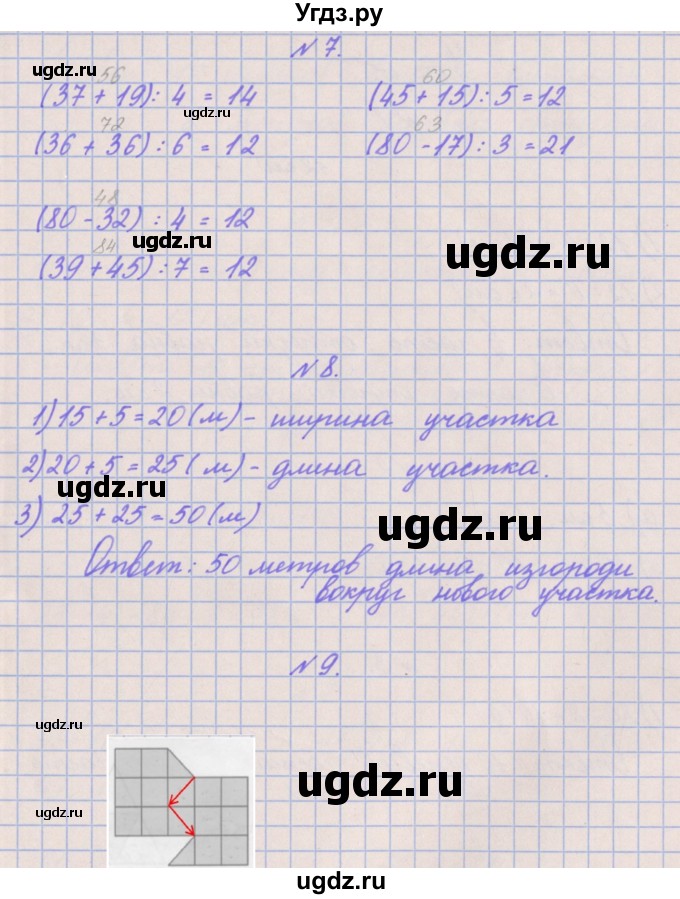 Угдз.ру
N 7.
ugdz.ru
56
60
(37 + 19) : 4 = 14
(45 + 15) : 5 = 12
ugdz.ru
72
63
(36 + 36) : 6 = 12
(80 - 17) : 3 = 21
48
(80 - 32) : 4 = 12
ugdz.ru
ugdz.ru
84
(39 + 45) : 7 = 12
N 8.
1) 15 + 5 = 20 (м) - ширина участка
2) 20 + 5 = 25 (м) - длина участка.
ugdz.ru
3) 25 + 25 = 50 (м)
ugdz.ru
Ответ: 50 метров длина изгороди
вокруг нового участка.
N 9.
ugdz.ru
ugdz.ru
ugdz.ru
ugdz.ru